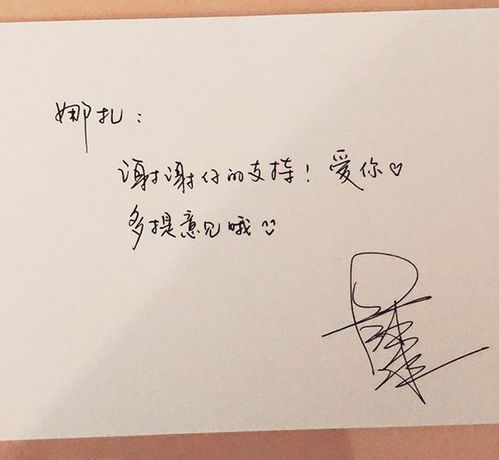 娜扎：
谢谢仔的支持！爱你♡
多提意见哦